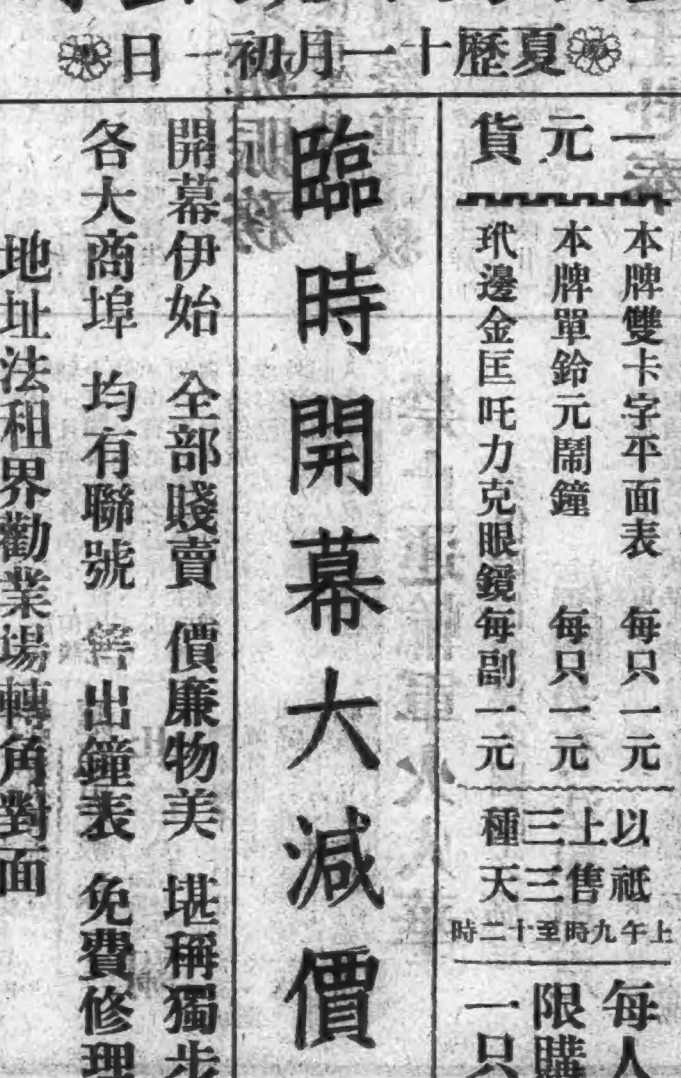 夏歷十一月初一日
一元貨
本牌雙卡字平面表 每只一元
本牌單鈴元鬧鐘 每只一元
玳邊金匡吒力克眼鏡每副一元
以上三種
祗售三天
上午九時至十二時
每人
限購
一只
臨時開幕大減價
開幕伊始 全部賤賣 價廉物美 堪稱獨步
各大商埠 均有聯號 售出鐘表 免費修理
地址法租界勸業場轉角對面